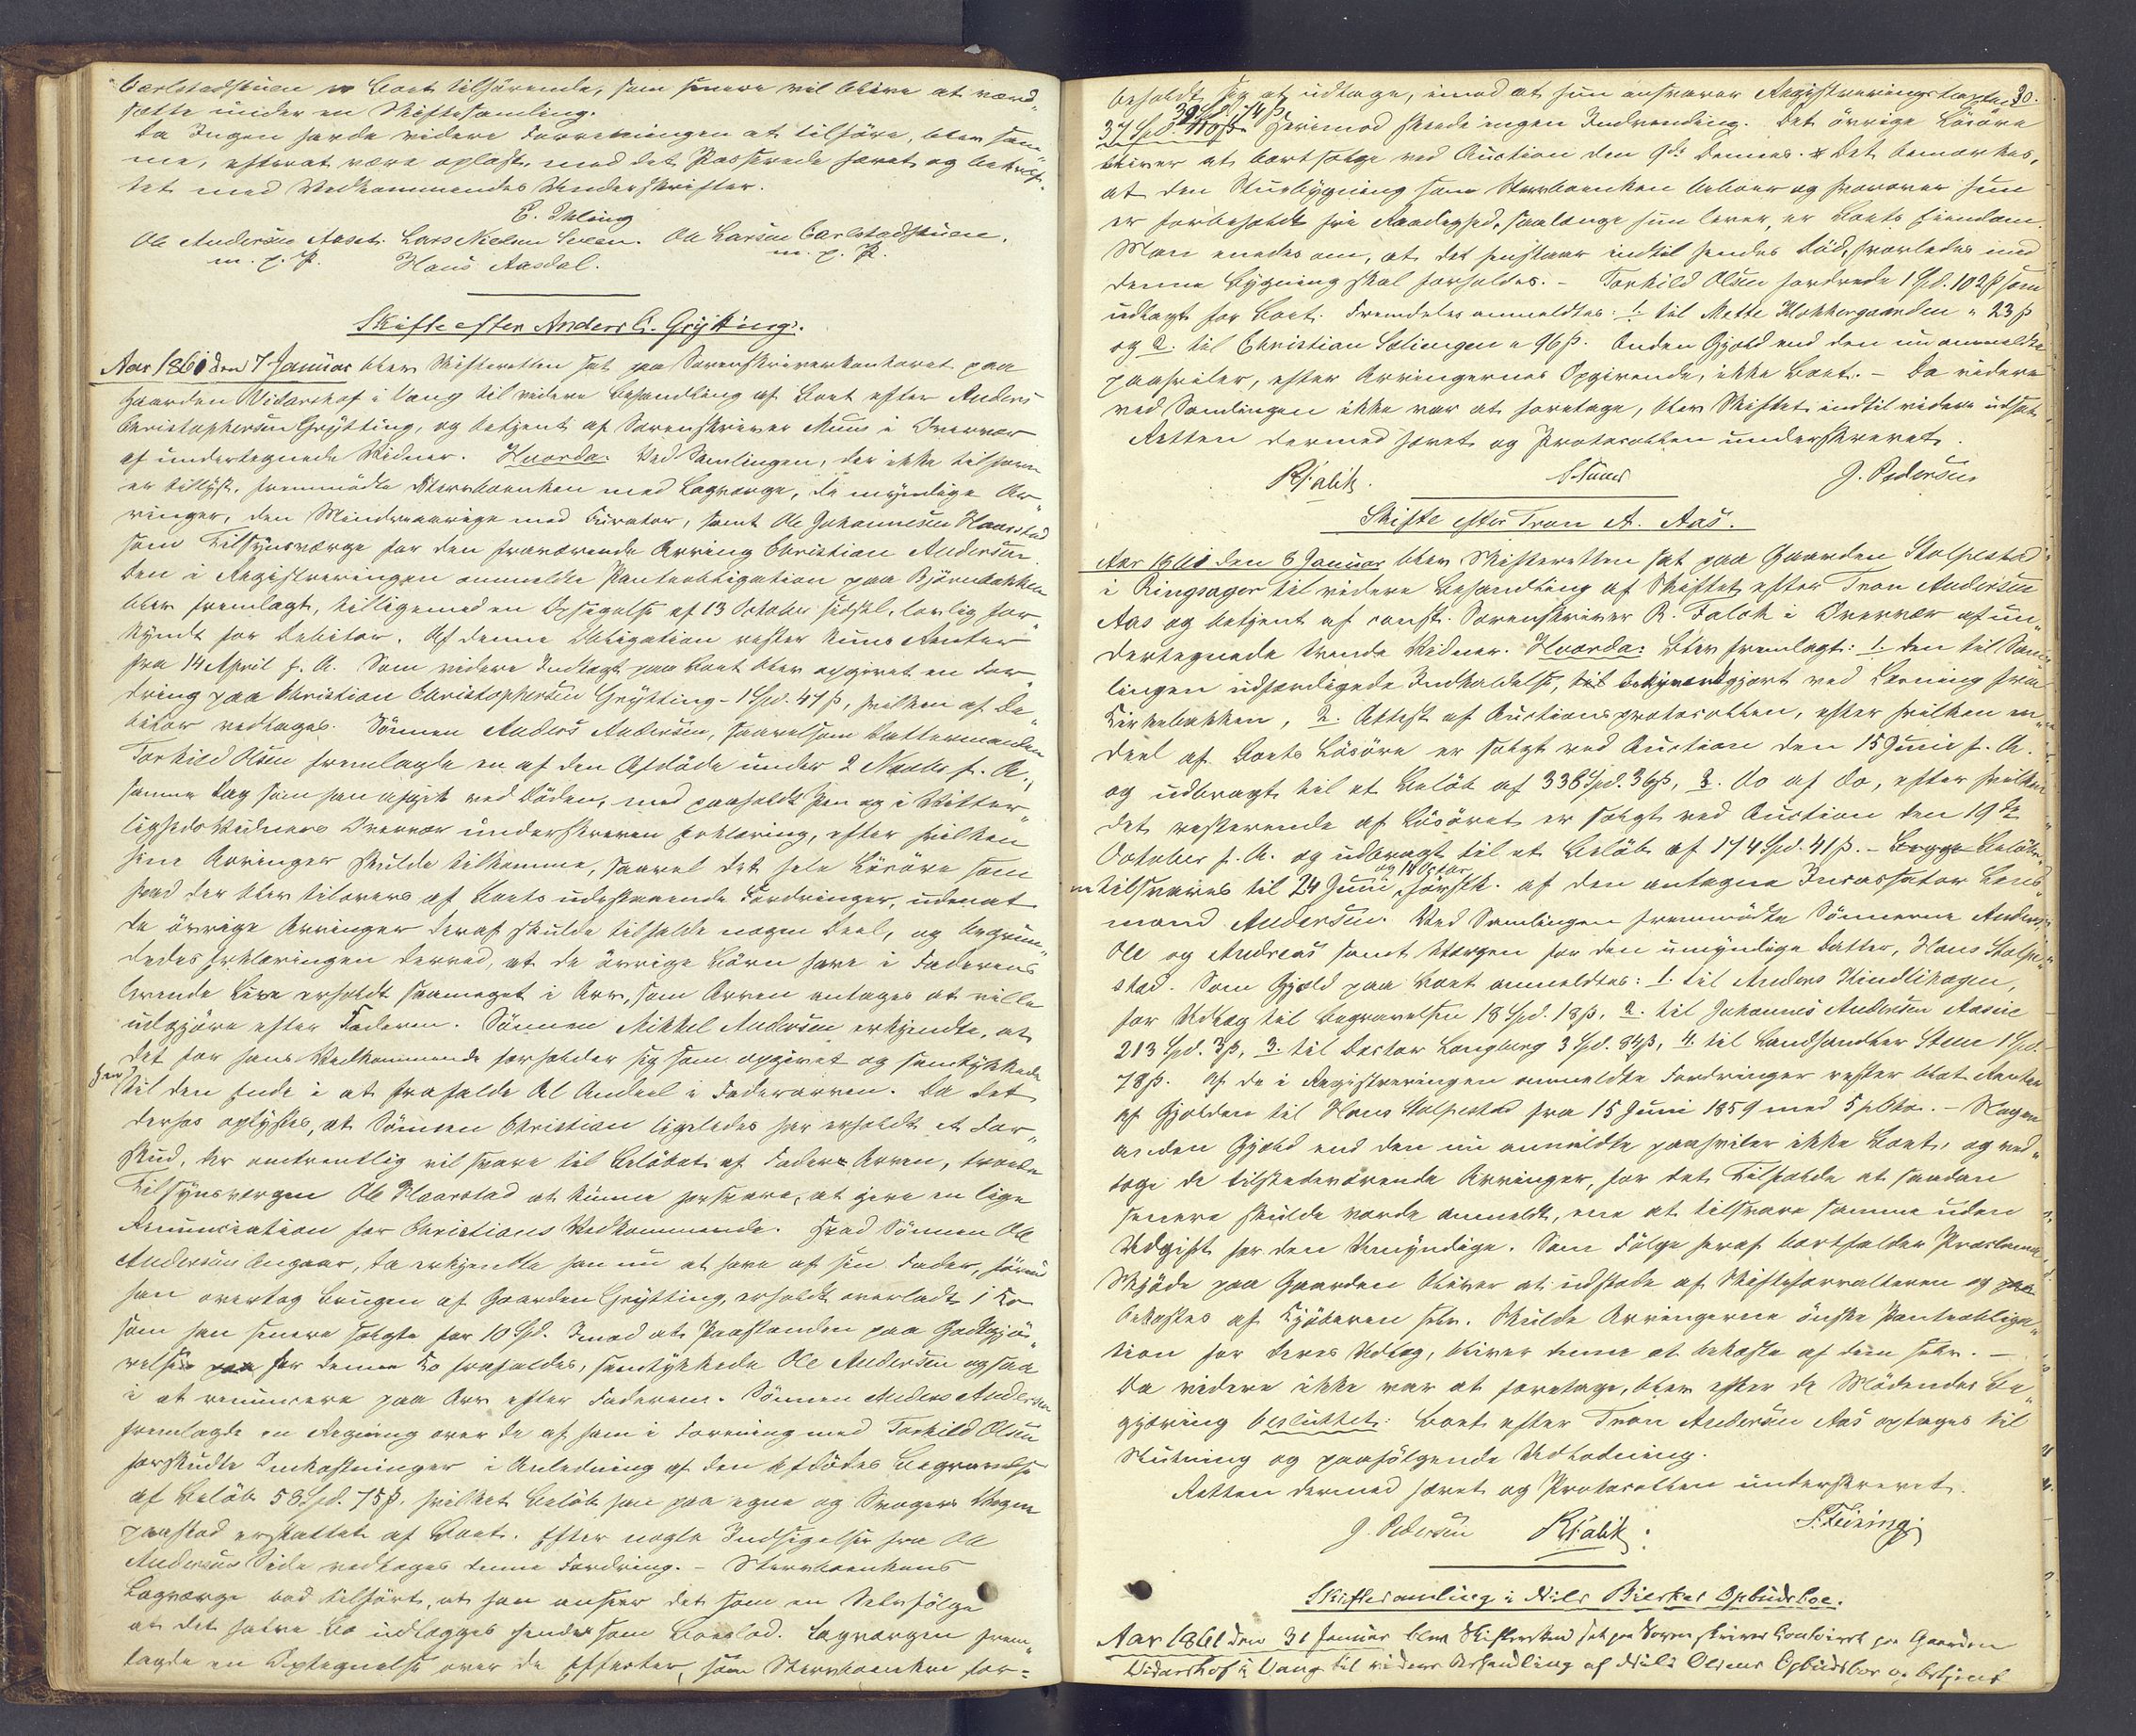 Carlstadstuen er Boet tilhörende, som senere vil blive at værd„
sætte under en Skiftesamling.
Da Ingen havde videre Forretningen at tilföre, blev sam„
me, efterat være oplæst, med det Passerede hævet og bekræf„
tet med Vedkommendes Underskrifter.
E. Ihleng
Ole Andersen Aaset. Lars Nielsen Sveen. Ole Larsen Carlstadstuen.
m. p. P. Hans Aasdal. m. p. P.
Skifte efter Anders C. Grÿtting.
Aar 1861 den 7 Januar blev Skifteretten sat paa Sorenskriverkontoret paa
Gaarden Vidarshof i Vang til videre Behandling af Boet efter Anders
Christophersen Grÿtting, og betjent af Sorenskriver Muus i Overvær
af undertegnede Vidner. Hvorda: Ved Samlingen, der ikke tilforn
er tillÿst, fremmödte Stervboenken med Lagværge, de mÿndige Ar„
vinger, den Mindreaarige med Curator, samt Ole Johannesen Haarstad
som Tilsÿnsværge for den fraværende Arving Christian Andersen
Den i Registreringen anmeldte Panteobligation paa Björnbakken
blev fremlagt, tilligemed en Opsigelse af 13 October sidstl., lovlig for„
kÿndt for Debitor. Af denne Obligation rester kuns Renter
fra 14 April f. A. Som videre Indtægt paa Boet blev opgivet en For„
dring paa Christian Christophersen Grÿtting - 1 Spd. 47 ß, hvilken af De„
bitor vedtages. Sönnen Anders Andersen, saavelsom Dattermanden
Torkild Olsen fremlagde en af den Afdöde under 2 Novbr f. A.,
samme Dag som han afgik ved Döden, med paaholdt Pen og i Vitter„
lighedsVidners Overvær underskreven Erklæring, efter hvilken
hine Arvinger skulde tilkomme, saavel det hele Lösöre som
hvad der blev tilovers af Boets udestaaende Fordringer, udenat
de övrige Arvinger deraf skulde tilfalde nogen Deel, og begrun„
dedes Erklæringen derved, at de övrige Börn have i Faderens
levende Live erholdt saameget i Arv, som Arven antages at ville
udgjöre efter Faderen. Sönnen Mikkel Andersen erkjendte, at
det for hans Vedkommende forholder sig som opgivet og samtÿkkede
til den Ende i at frafalde Al Andeel i Fadrearven. Da det
derhos oplÿstes, at Sönnen Christian ligeledes har erholdt et For„
skud, der omtrentlig vil svare til Belöbet af Fader-Arven, troede
Tilsÿnsværgen Ole Haarstad at kunne forsvare, at gjøre en lige
Renunciation for Christians Vedkommende. Hvad Sönnen Ole
Andersen angaar, da erkjendte han nu at have af sin Fader, förend
han overtog Brugen af Gaarden Grÿtting, erholdt overladt 1 Ko
som han senere solgte for 10 Spd. Imod at Paastanden paa Godtgjö„
relse for denne Ko frafaldes, samtÿkkede Ole Andersen ogsaa
i at renuncere paa Arv efter Faderen. Sönnen Anders Andersen
fremlagde en Regning over de af ham i Forening med Torkild Olsen
forskudte Omkostninger i Anledning af den Afdödes Begravelse
af Belöb 58 Spd. 75 ß, hvilket Belöb han paa egne og Svogers Vegne
paastod erstattet af Boet. Efter nogle Indsigelser fra Ole
Andersens Side vedtoges denne Fordring. - Stervboenkens
Lagværge bad tilfört, at han anseer det som en Selvfölge
at det halve Bo udlægges hende som Boeslod. Lagværgen frem„
lagde en Optegnelse over de Effecter, som Stervboenken for=
beholdt sig at udtage, imod at hun ansvarer Registreringstaxten 30.
37 Spd. Herimod skeede ingen Indvending. Det övrige Lösöre
bliver at bortsælge ved Auction den 9de Dennes. Det bemærkes,
at den Stuebÿgning som Stervboenken beboer og hvorover hun
er forbeholdt fri Raadighed, saalænge hun lever, er Boets Eiendom.
Man enedes om, at det henstaaer indtil hendes Död, hvorledes med
denne Bÿgning skal forholdes. - Torkild Olsen fordrede 1 Spd. 102 ß som
udlagt for Boet. Fremdeles anmeldtes: 1. til Mette Klokkergaarden „ 23 ß
og 2. til Christian Sætiengen „ 96 ß. Anden Gjæld end den nu anmeldte
paahviler, efter Arvingernes Opgivende, ikke Boet. - Da videre
ved Samlingen ikke var at foretage, blev Skiftet indtil videre udsat
Retten dermed hævet og Protocollen underskrevet.
RFalck. SMuus J. Pedersen
Skifte efter Tron A. Aas.
Aar 1861 den 8 Januar blev Skifteretten sat paa Gaarden Stolpestad
i Ringsager til videre Behandling af Skiftet efter Tron Andersen
Aas og betjent af const. Sorenskriver R. Falck i Overvær af un„
dertegnede tvende Vidner. Hvorda: Blev fremlagt: 1. den til Sam„
lingen udfærdigede Indkaldelse, bekjendtgjort ved Læsning fra
Kirkebakken, 2. Attest af Auctionsprotocollen, efter hvilken en
Deel af Boets Lösöre er solgt ved Auction den 15 Juni f. A.
og udbragt til et Belöb af 338 Spd. 36 ß, 3. Do af Do, efter hvilken
det resterende af Lösöret er solgt ved Auction den 19de
October f. A. og udbragt til et Belöb af 174 Spd. 41 ß. - Begge Belöb
tilsvares til 24 Juni og 14 Octbr förstk. af den antagne Incassator Lens„
mand Andersen. Ved Samlingen fremmödte Sönnerne Anders,
Ole og Andreas samt Værgen for den umÿndige Datter, Hans Stolpe„
stad. Som Gjæld paa Boet anmeldtes: 1. til Anders Kindlihagen,
for Udlæg til Begravelsen 18 Spd. 18 ß, 2. til Johannes Andersen Aasne
213 Spd. 3 ß, 3. til Doctor Langberg 3 Spd. 84 ß, 4. til Landhandler Steen 1 Spd.
78 ß. Af de i Registreringen anmeldte Fordringer rester blot Renter
af Gjælden til Hans Stolpestad fra 15 Juni 1859 med 5 pCto. - Nogen
anden Gjæld end den nu anmeldte paahviler ikke Boet, og ved„
toge de tilstedeværende Arvinger, for det Tilfælde at saadan
senere skulde vorde anmeldt, ene at tilsvare samme uden
Udgift for den Umÿndige. Som Fölge heraf bortfalder Proclama
Skjöde paa Gaarden bliver at udstede af Skifteforvalteren og
bekostes af Kjöberen selv. Skulde Arvingerne önske Panteobliga„
tion for deres Udlæg, bliver denne at bekoste af dem selv. -
Da videre ikke var at foretage, blev efter de Mödendes Be„
gjæring besluttet: Boet efter Tron Andersen Aas optages til
Slutning og paafölgende Udlodning.
Retten dermed hævet og Protocollen underskrevet.
J. Pedersen RFalck. S. Teining
Skiftesamling i Nils Bierkes Opbudsboe.
Aar 1861 den 31 Januar blev Skifteretten sat paa Sorenskriver Contoiret paa Gaarden
Vidarshof i Vang til videre Behandling af Nils Olsens Opbudsboe og betjent